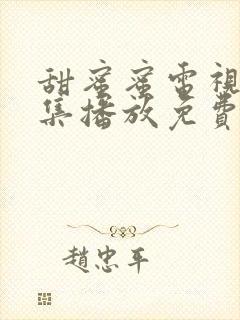 甜蜜蜜電視
集播放免費
趙忠平